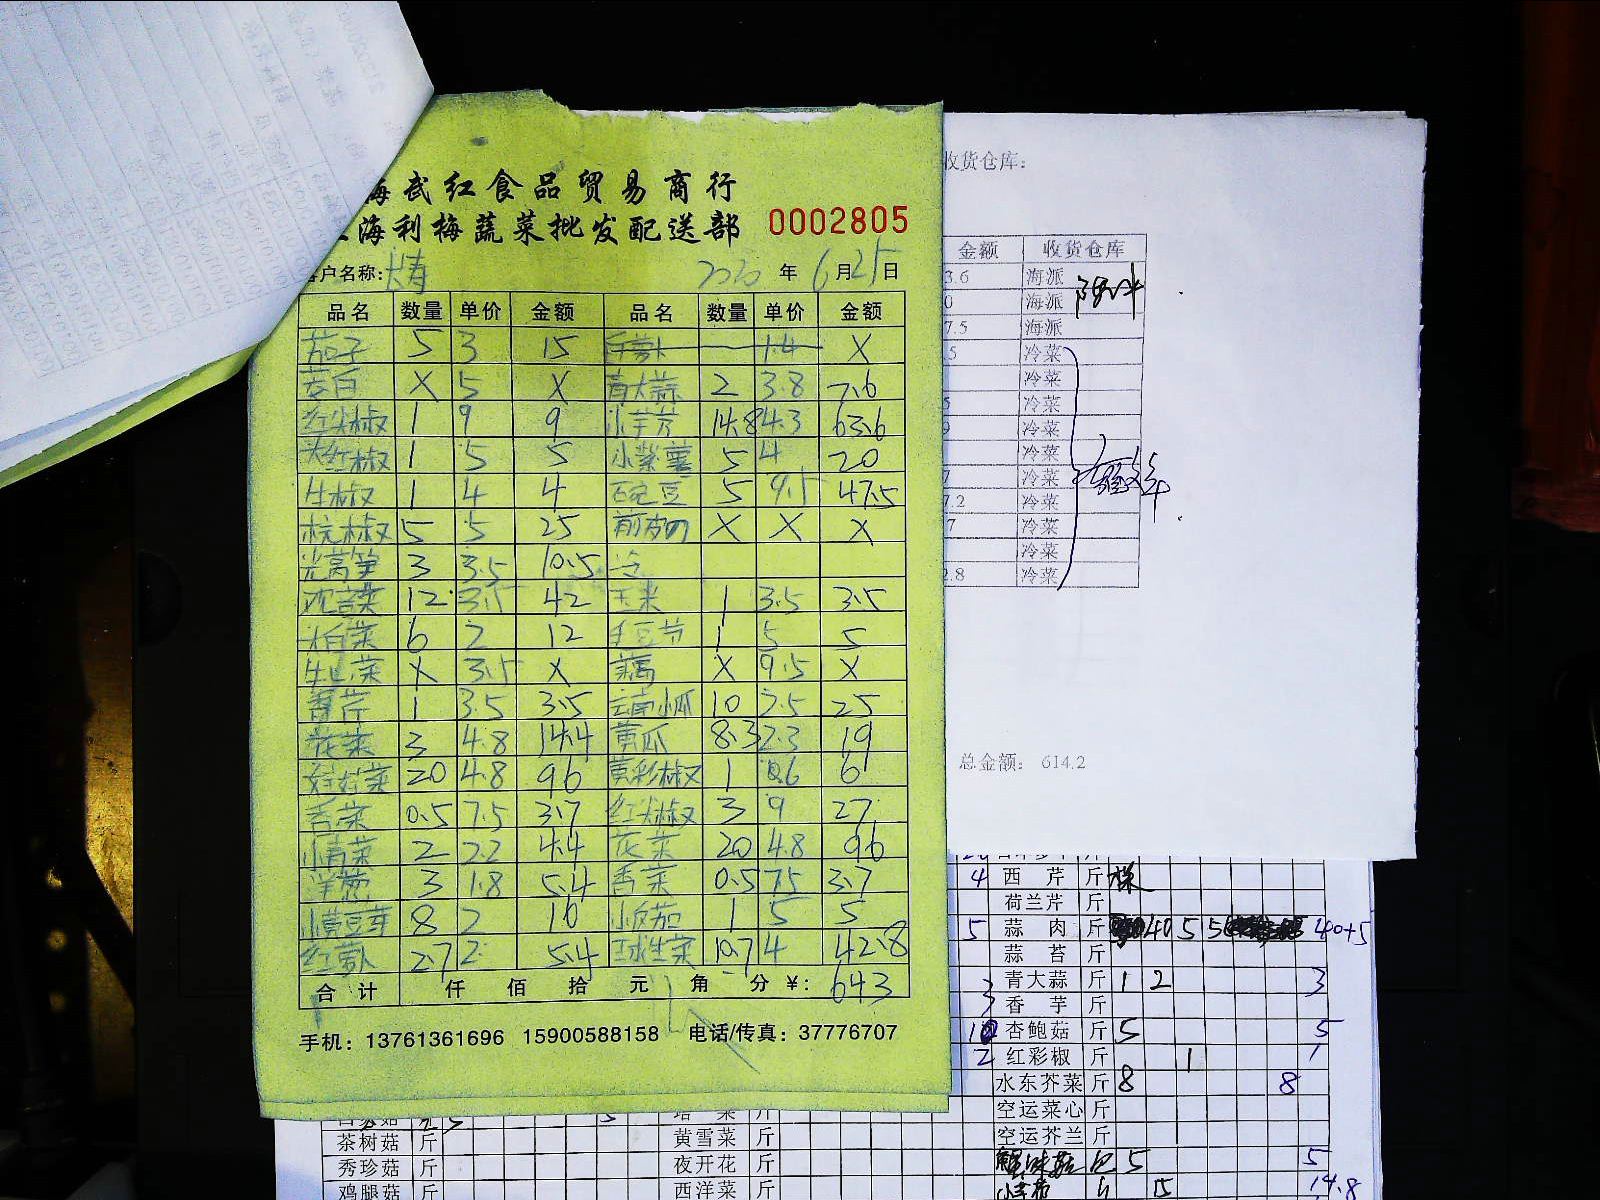 海武红食品贸易商行
海利梅蔬菜批发配送部 0002805
户名称: 长青 2020 年 6 月 25 日
品名 数量 单价 金额 品名 数量 单价 金额
茄子 5 3 15 1.4 X
茭白 X 5 X 青大蒜 2 3.8 7.6
红尖椒 1 9 9 小芋艿 14.8 4.3 63.6
大红椒 1 5 5 小紫薯 5 4 20
牛椒 1 4 4 豌豆 5 9.5 47.5
杭椒 5 5 25 X X X
光莴笋 3 3.5 10.5
12 3.5 42 玉米 1 3.5 3.5
大白菜 6 2 12 毛豆节 1 5 5
生菜 X 3.5 X 藕 X 9.5 X
香芹 1 3.5 3.5 云南小瓜 10 2.5 25
花菜 3 4.8 14.4 黄瓜 8.3 2.3 19
娃娃菜 20 4.8 96 黄彩椒 1 6 6
香菜 0.5 7.5 3.7 红尖椒 3 9 27
小青菜 2 2.2 4.4 花菜 20 4.8 96
洋葱 3 1.8 5.4 香菜 0.5 7.5 3.7
小黄豆芽 8 2 16 小番茄 1 5 5
红萝卜 2.7 2 5.4 球生菜 10.7 4 42.8
合计 仟 佰 拾 元 角 分 ¥: 643
手机: 13761361696 15900588158 电话/传真: 37776707
收货仓库:
金额 收货仓库
3.6 海派
0 海派
7.5 海派
5 冷菜
冷菜
冷菜
冷菜
冷菜
7 冷菜
7.2 冷菜
7 冷菜
冷菜
2.8 冷菜
总金额: 614.2
4 西芹 斤
荷兰芹 斤
5 蒜肉 斤 40 5 5 40+5
蒜苔 斤
青大蒜 斤 1 2 3
3 香芋 斤
10 杏鲍菇 斤 5 5
2 红彩椒 斤 1 1
水东芥菜 斤 8 8
空运菜心 斤
空运芥兰 斤
茶树菇 斤 黄雪菜 斤
秀珍菇 斤 夜开花 斤 5 5
鸡腿菇 斤 西洋菜 斤 15 14.8